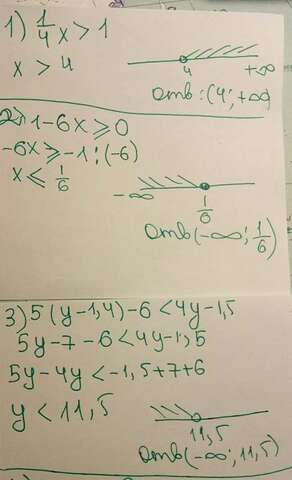 1) 1/4 x > 1
x > 4
4 +∞
Отв: (4; +∞)
2) 1-6x ⩾ 0
-6x ⩾ -1 : (-6)
x ⩽ 1/6
-∞ 1/6
Отв(-∞; 1/6)
3) 5(y-1,4)-6 < 4y-1,5
5y-7-6 < 4y-1,5
5y-4y < -1,5+7+6
y < 11,5
11,5
Отв(-∞; 11,5)